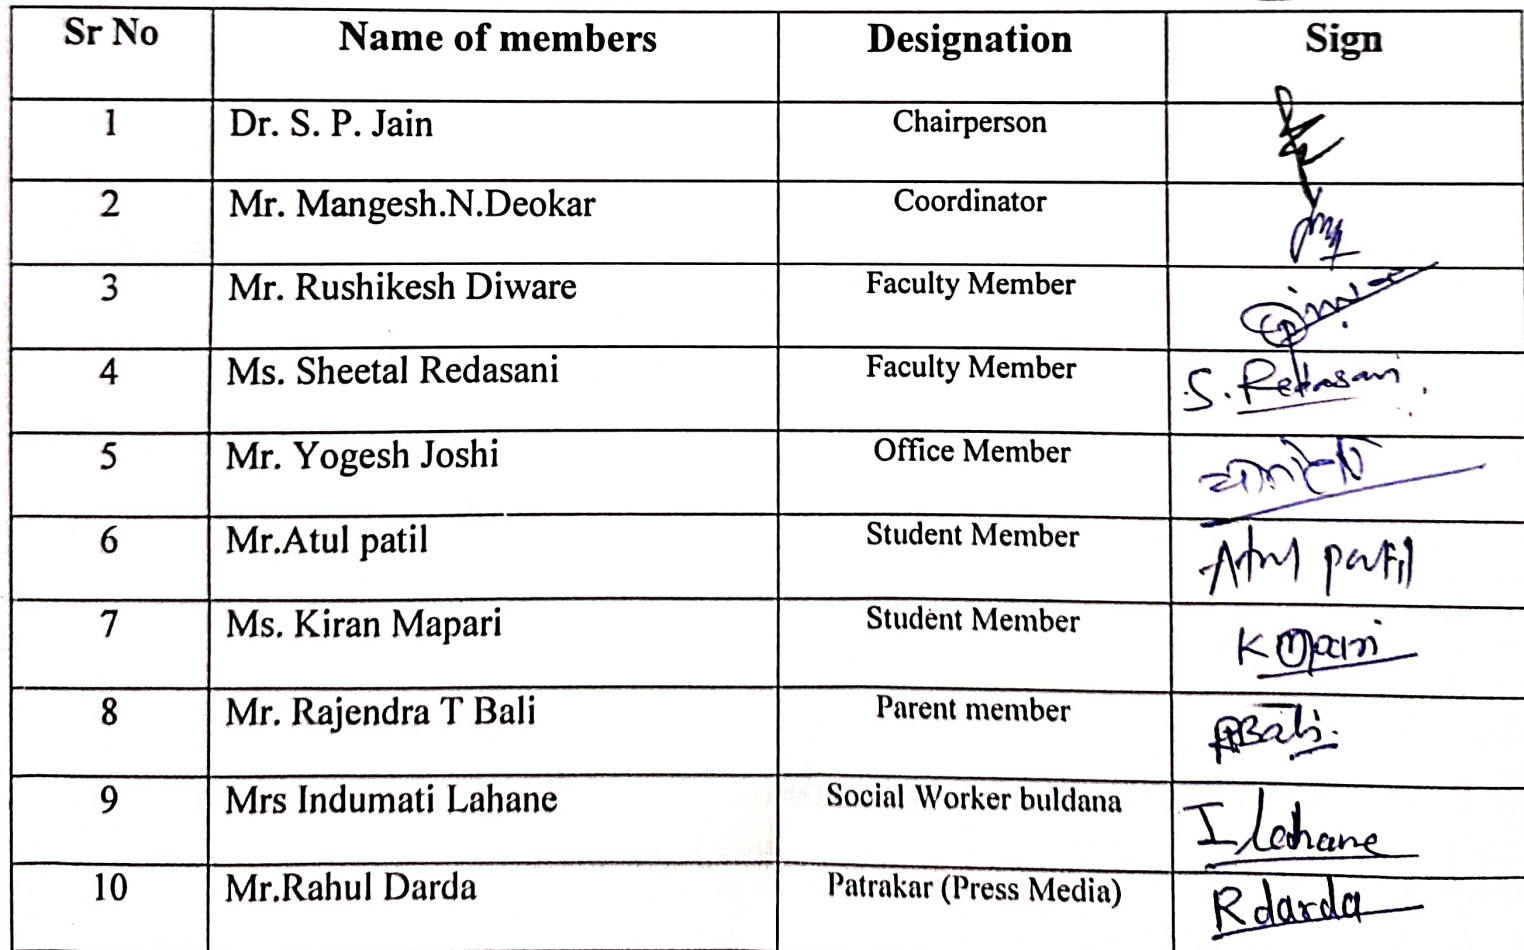 Sr No Name of members Designation Sign
1 Dr. S. P. Jain Chairperson
2 Mr. Mangesh.N.Deokar Coordinator
3 Mr. Rushikesh Diware Faculty Member
4 Ms. Sheetal Redasani Faculty Member S. Redasani
5 Mr. Yogesh Joshi Office Member
6 Mr.Atul patil Student Member Atul patil
7 Ms. Kiran Mapari Student Member K Mapari
8 Mr. Rajendra T Bali Parent member RBali
9 Mrs Indumati Lahane Social Worker buldana I Lahane
10 Mr.Rahul Darda Patrakar (Press Media) R darda